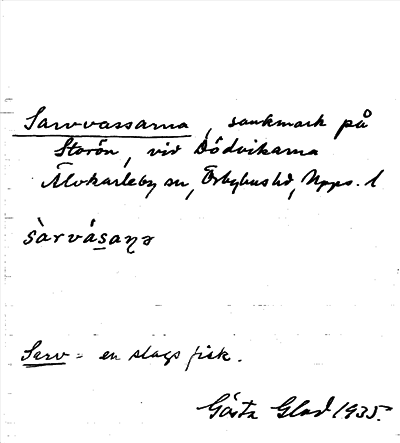 Sarvvassarna, sankmark på
Storön, vid Dödvikarna
Älvkarleby sn, Örbyhus hd, Upps. l
sàrvásaṇə
Sarv = en slags fisk.
Gösta Glad 1935.